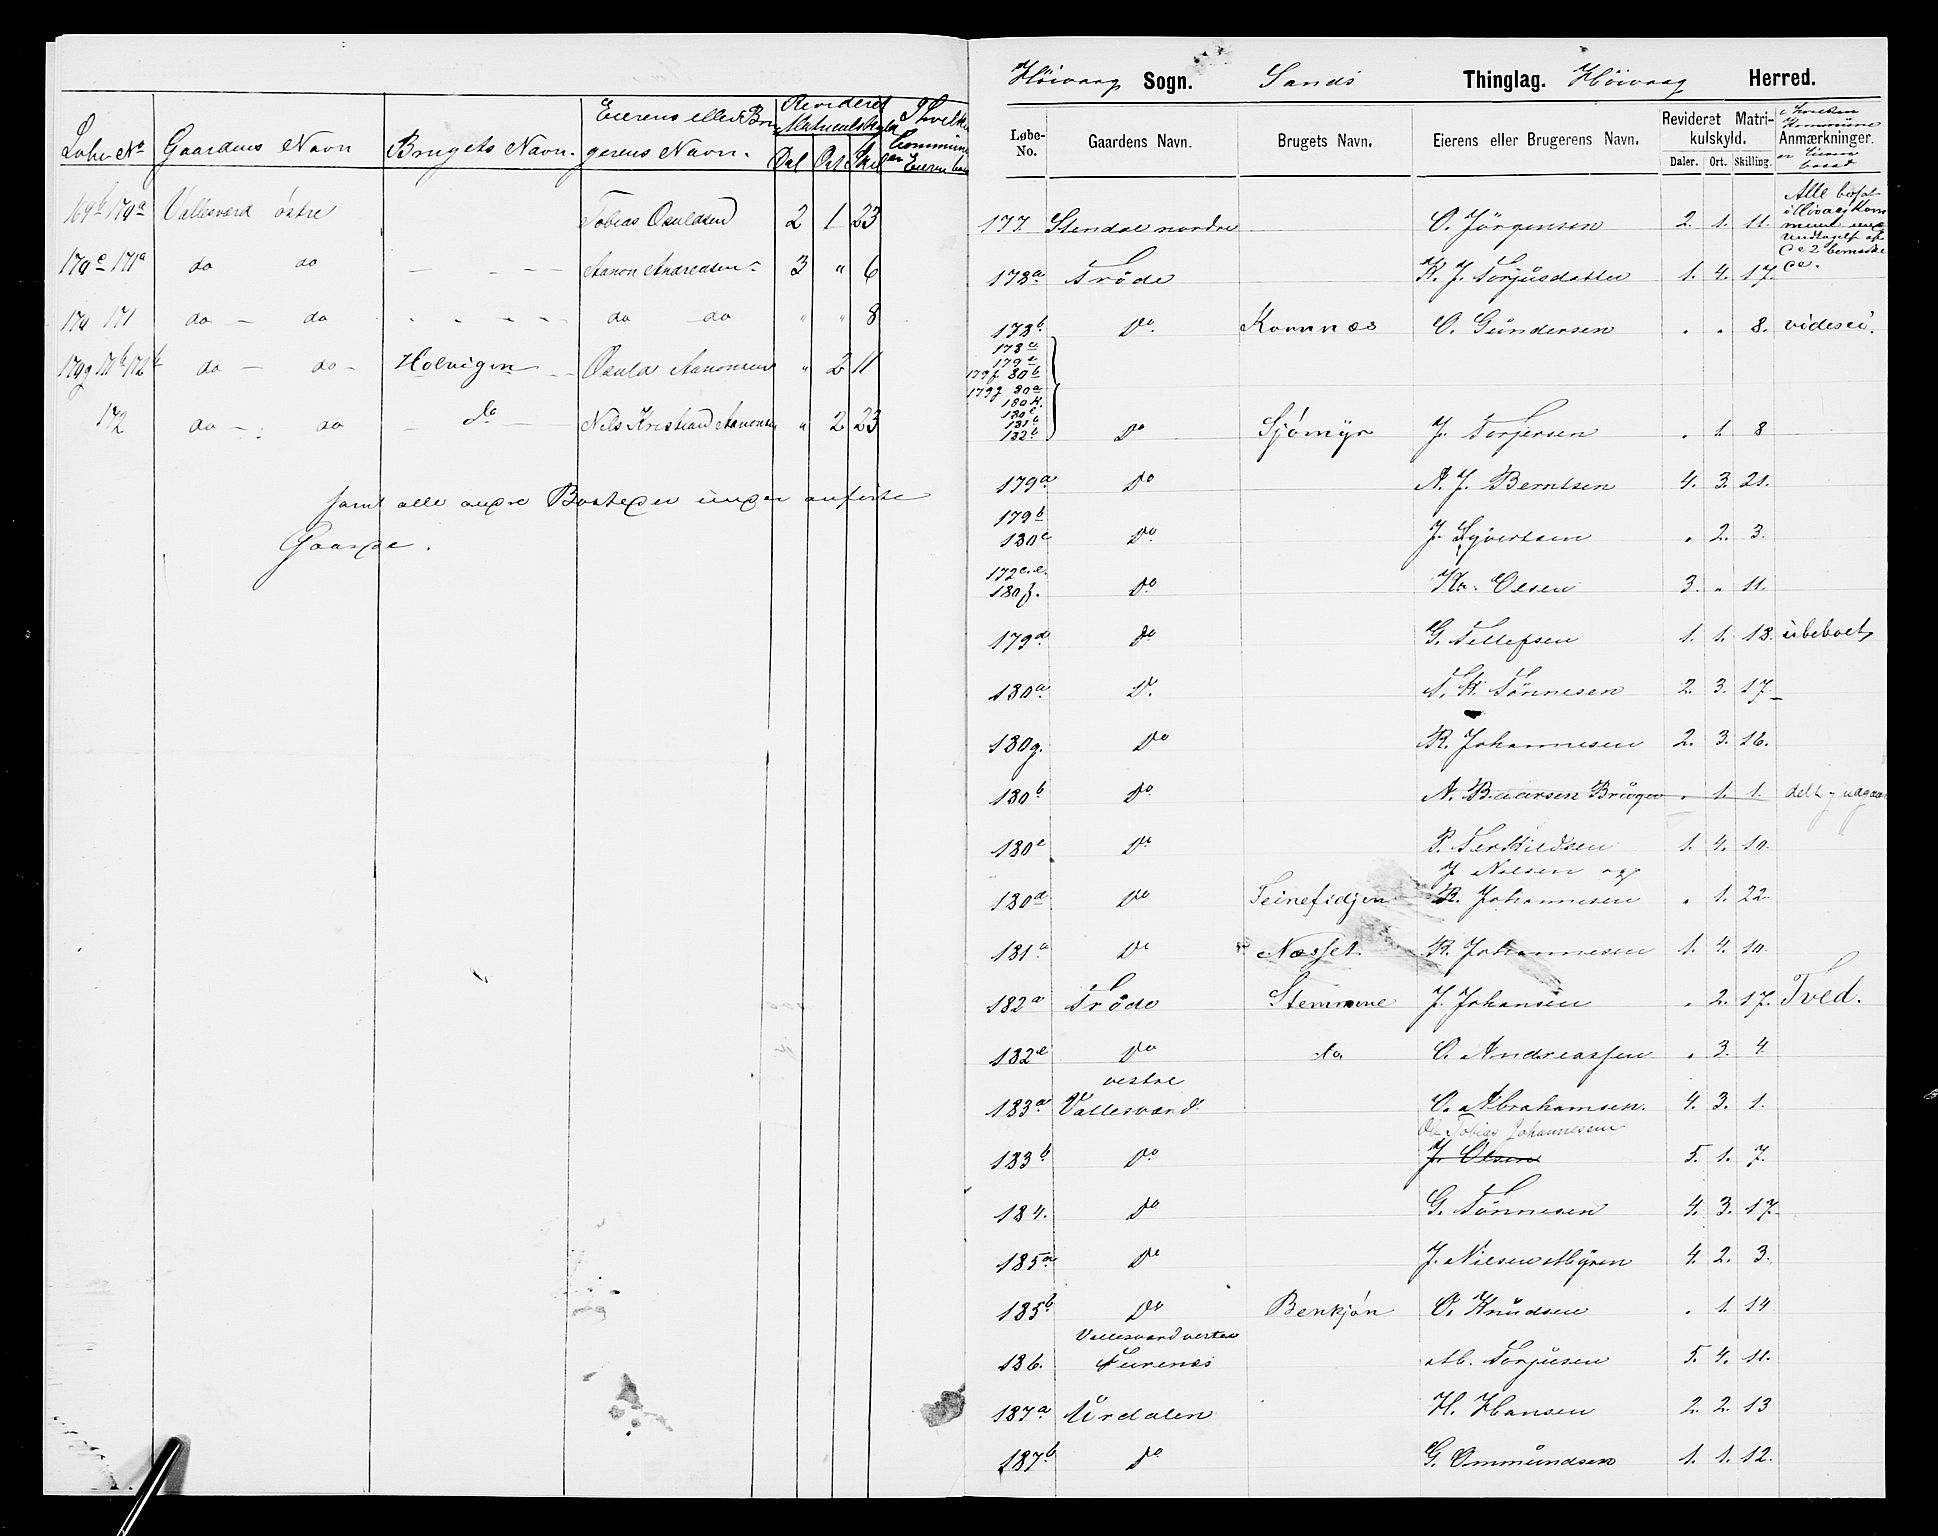 Løbe No Gaardens Navn Brugets Navn. Eierens eller Bru-
gerens Navn. Revideret
Matriculskyld
Dal Ort Skil I hvilken
Commune
er Eieren bos
169b 170a Vallesværd östre Tobias Osuldsen 2 1 23
170c 171a do do Aanon Andreasen 3 " 6
170 171 do do do do " " 8
170g 171b 172b do do Holvigen Osuld Aanonsen " 2 11
172 do do do Nils Kristian Aanonsen " 2 23
samt alle andre Bosteder under anførte
Gaarde.
Höivaag Sogn. Sands Thinglag. Höivaag Herred.
Løbe-
No. Gaardens Navn. Brugets Navn. Eierens eller Brugerens Navn. Revideret Matri-
kulskyld.
Daler. Ort. Skilling. I hvilken
Kommune
Anmærkninger.
er Eieren
bosat
177. Stendal nordre O. Jörgensen 2. 1. 11. Alle bosat
i Höivaag Kom
mune med
Undtagelse af
de 2 bemærke
de.
178a Tröde K. J. Torjusdatter 1. 4. 17.
178b Do. Kvernnes O. Gundersen . . 8. videsei.
178c
179e
179f 80b
179g 80a
180k.
180l.
181b
182b Do Sjömyr J. Torjersen . 1. 8
179a Do A. J. Berntsen 4. 3. 21.
179b
180c Do. J. Syvertsen . 2. 3.
179c.e.
180f. Do Kr. Olsen 3. . 11.
179d do G. Tellefsen 1. 1. 18. ubeboet
180a D. T. K. Tönnesen 2. 3. 17.
180g. Do R. Johannesen 2. 3. 16.
180b Do A. Baarsen Brüger . 1. 1. delt
180e Do P. Terkildsen 1. 4. 10.
J. Nilsen og
180d Do Teinefidjen R. Johannesen . 1. 22.
181a Do Næsset. R. Johannesen 1. 4. 10.
182a Tröde Stemmene J. Johansen . 2. 17. Tved.
182c Do do, O. Andreassen . 3. 4.
vestre
183a Vallesværd O. Abrahamsen. 4. 3. 1.
Tobias Johannesen
183b Do J. Olsen 5. 1. 7.
184. Do G. Tönnesen 4. 3. 17.
185a Do J. Nilsen Myren 4. 2. 3.
185b Do Benkjön O. Knudsen . 1. 14
Vallesværd vestre
186. Furenes M. Torjusen 5. 4. 11.
187a Urdalen H. Hansen 2. 2. 13
187b Do G. Ommundsen 1. 1. 12.